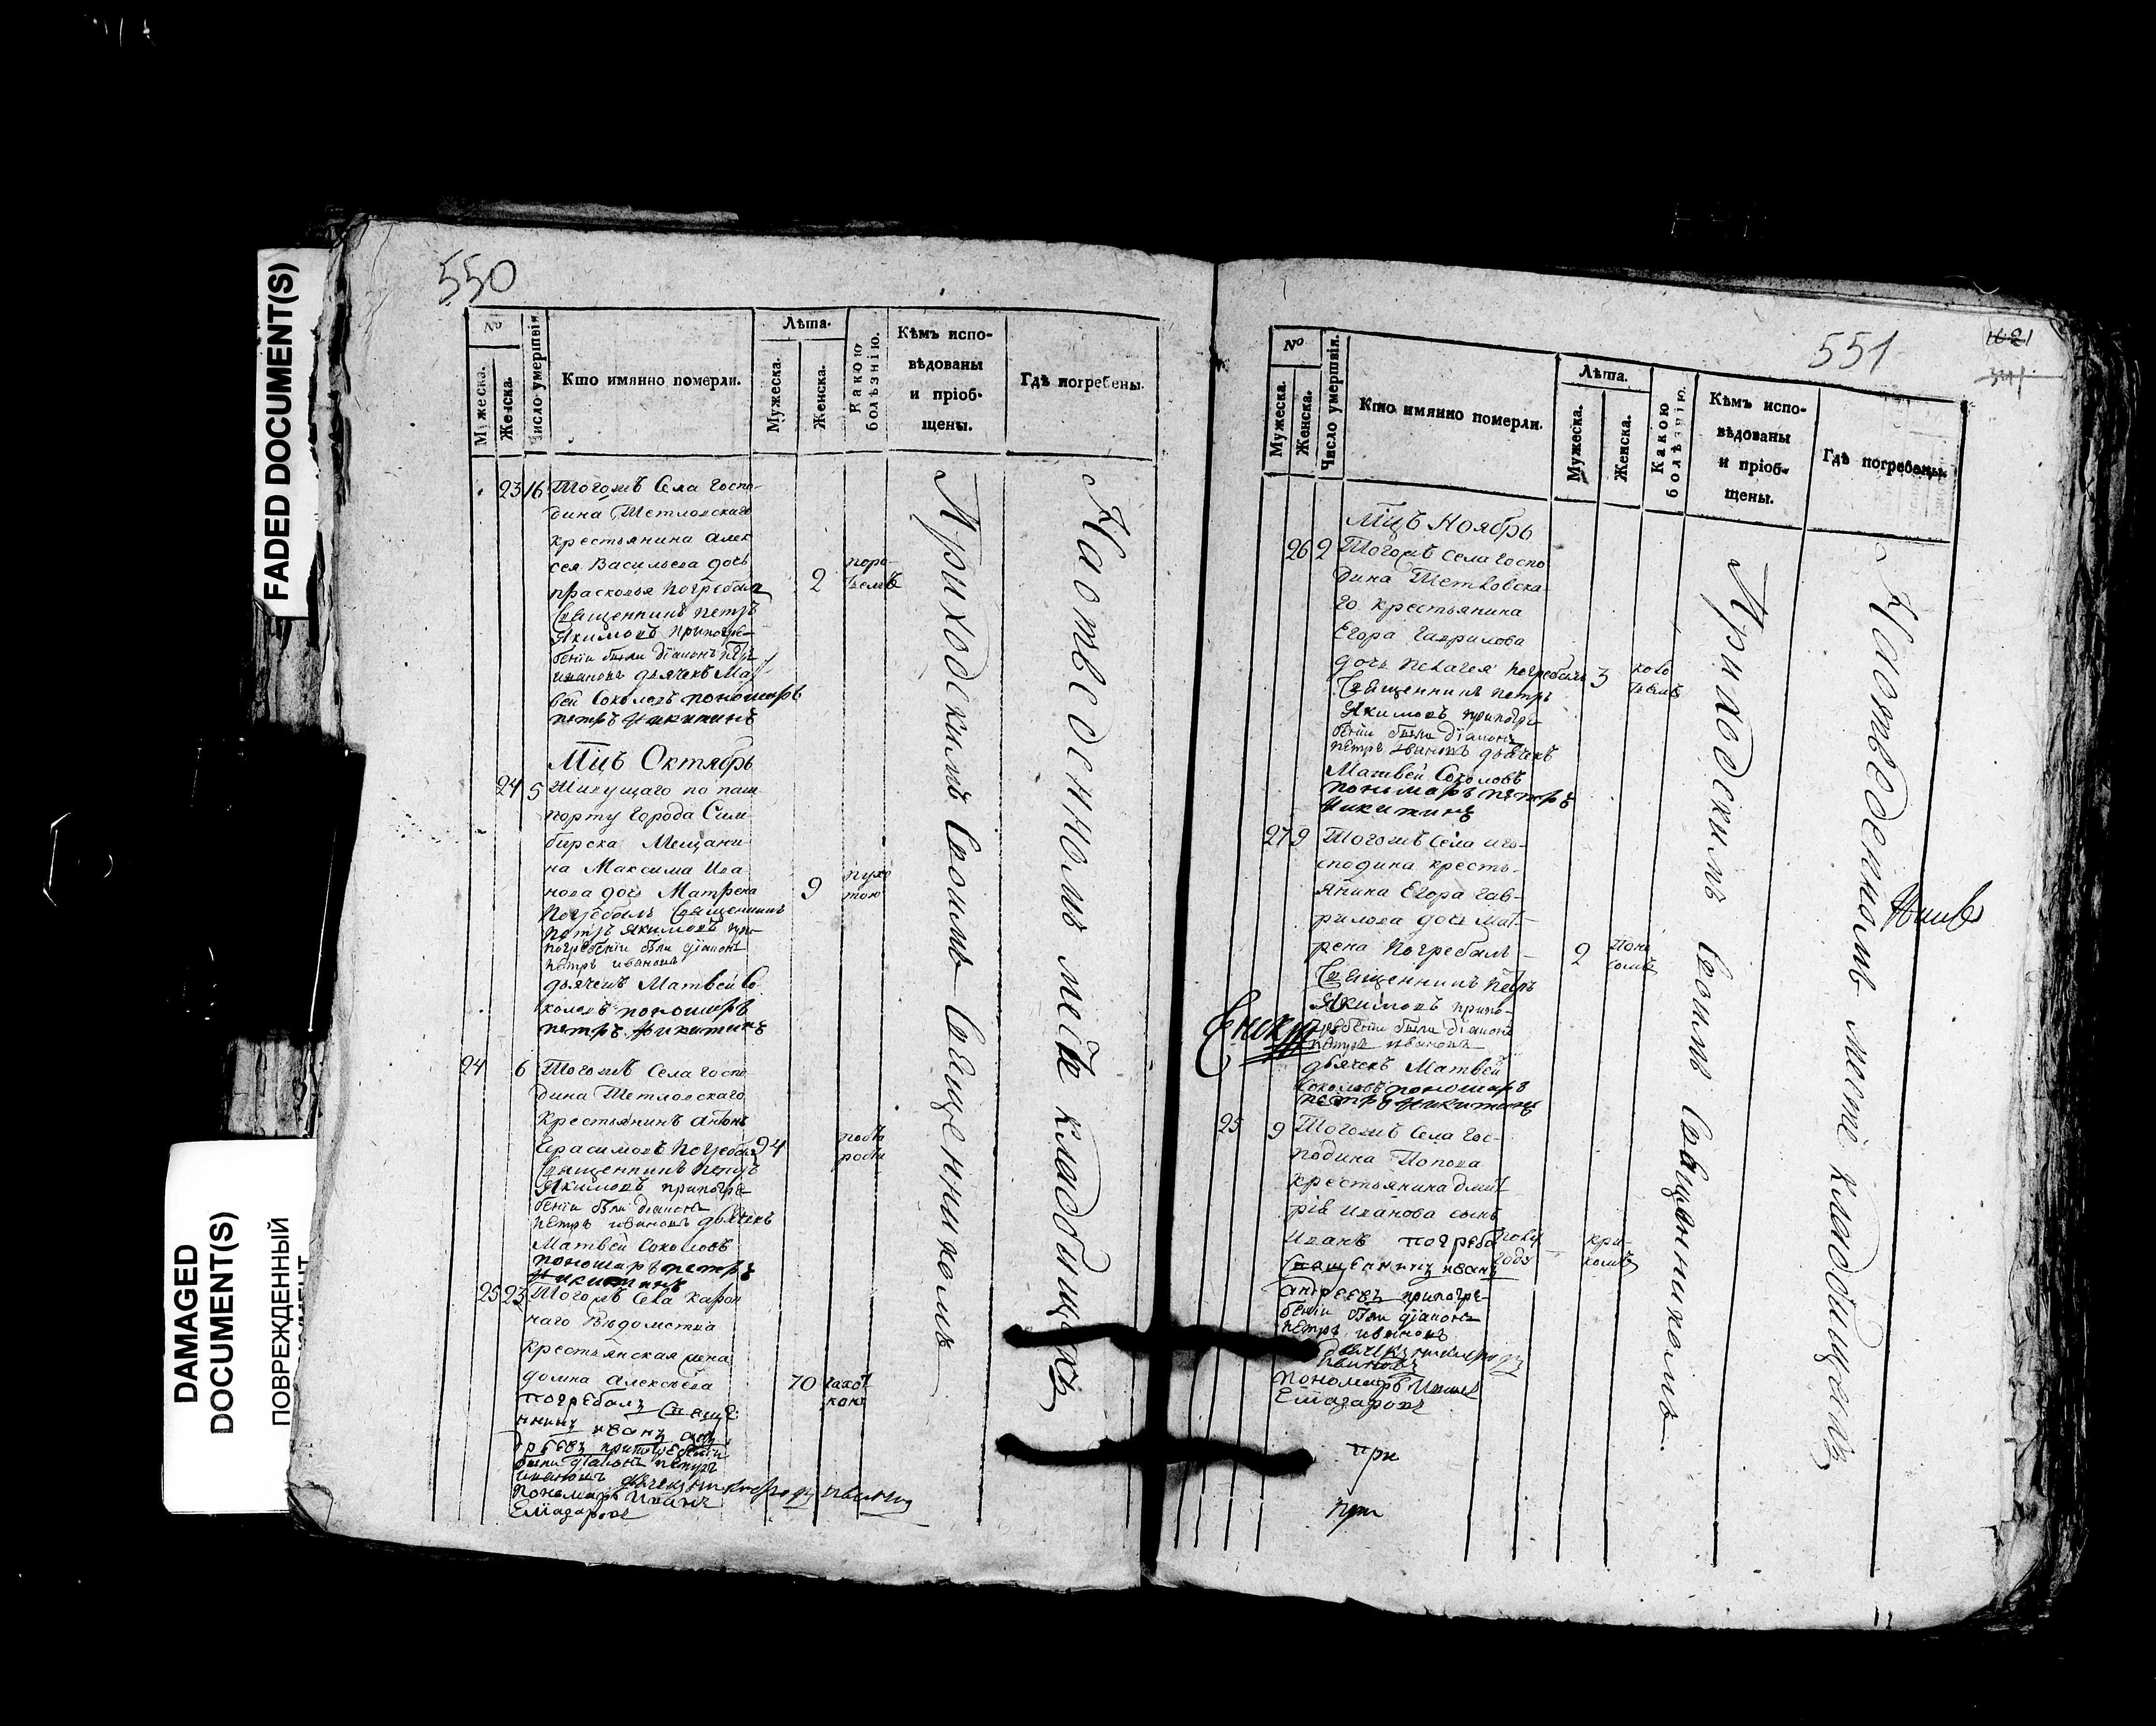 FADED DOCUMENT(S)
DAMAGED
DOCUMENT(S)
ПОВРЕЖДЕННЫЙ
550
№
Мужеска.
Женска.
Число умертвія.
Кто имянно померли.
Лѣта.
Мужеска.
Женска.
Какою
болѣзнію.
Кѣмъ испо-
вѣдованы
и пріоб-
щены.
Гдѣ погребены.
23 16 Тогожъ Села госпо-
дина Тетловскаго
крестьянина Алек
сея Васильева дочь
прасковья погребал 2
Священникъ петръ
Якимовъ припогре-
бении были діаконъ петръ
ивановъ дьячекъ Мат
вей Соколовъ пономаръ
петръ Никитинъ
Мцъ Октябрь
24 5 Живущаго по паш
порту города Сим
бирска Мещани
на Максима Ива
нова дочь Матрена 9
Погребалъ Священникъ
петръ Якимовъ при
погребении были діаконъ
петръ ивановъ
дьячекъ Матвей Со
коловъ пономаръ
петръ Никитинъ
24 6 Тогожъ Села госпо
дина Тетловскаго
Крестьянинъ Антонъ
Герасимовъ Погребал 94
Священникъ петръ
Якимовъ припогре
бении были діаконъ
петръ ивановъ дьячекъ
Матвей Соколовъ
пономаръ петръ
Никитинъ
25 23 Тогожъ Села
наго Ведомства
Крестьянская жена
домна Алексеева 70
погребалъ Свяще
нникъ иванъ Ан
дреевъ припогребении
были діаконъ петръ
ивановъ дьячекъ
пономаръ Иванъ
Приходскимъ Своимъ Священникомъ
На отведенномъ месте кладбищехъ
551
1021
№
Мужеска.
Женска.
Число умертвія.
Кто имянно померли.
Лѣта.
Мужеска.
Женска.
Какою
болѣзнію.
Кѣмъ испо-
вѣдованы
и пріоб-
щены.
Гдѣ погребены.
Мцъ Ноябрь
26 2 Тогожъ Села госпо
дина Тетловска
го крестьянина
Егора Гаврилова
дочь пелагея погребалъ 3
Священникъ петръ
Якимовъ припогре
бении были діаконъ
петръ ивановъ дьячекъ
Матвей Соколовъ
пономаръ петръ
Никитинъ
27 9 Тогожъ Села иго-
сподина кресть-
янина Егора Гав-
рилова дочь мат-
рена Погребалъ 2
Священникъ петръ
Якимовъ припо-
гребении были діаконъ
петръ ивановъ
дьячекъ Матвей
Соколовъ пономаръ
петръ Никитинъ
25 9 Тогожъ Села гос-
подина Попова
крестьянина дмит
рія Иванова сынъ
Иванъ погреба
Священникъ иванъ
андреевъ припогре-
бении были діаконъ
петръ ивановъ
пономаръ Иванъ
при
при
Приходскимъ Своимъ Священникомъ
На отведенномъ месте кладбищехъ